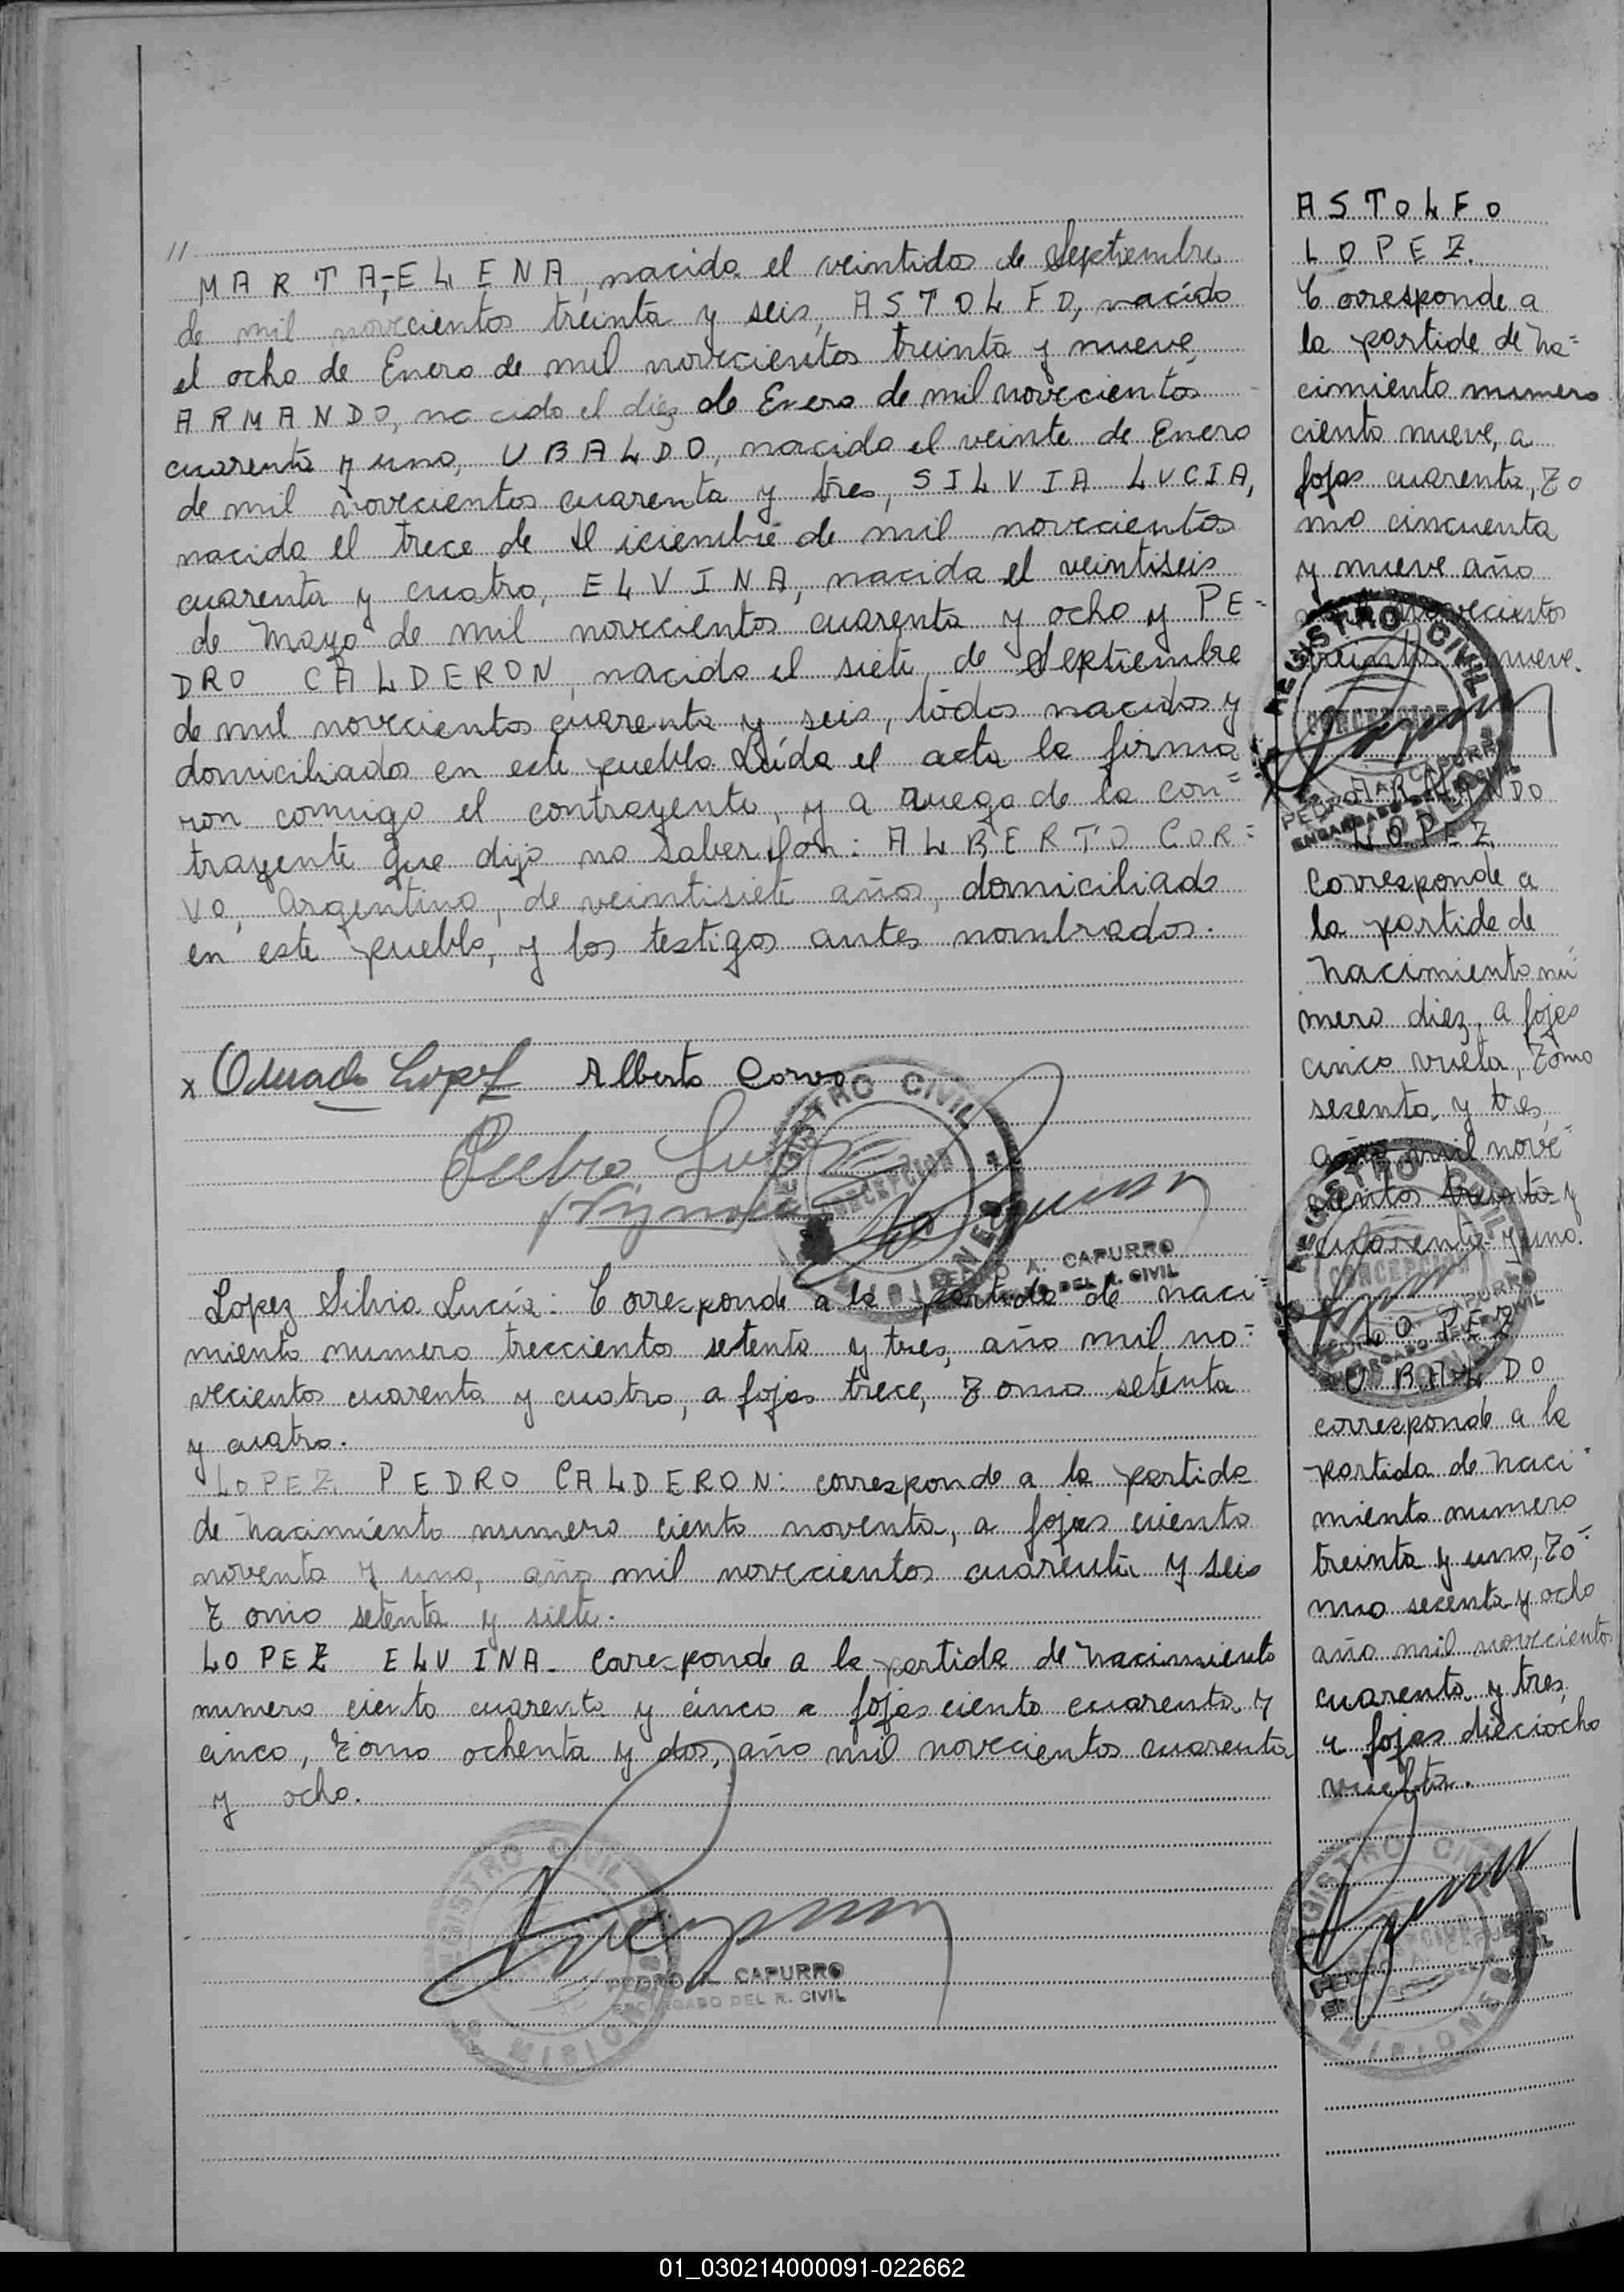 //
MARTA-ELENA, nacida el veintidos de Septiembre
de mil novecientos treinta y seis, ASTOLFO, nacido
el ocho de Enero de mil novecientos treinta y nueve,
ARMANDO, nacido el diez de Enero de mil novecientos
cuarenta y uno, UBALDO, nacido el veinte de Enero
de mil novecientos cuarenta y tres, SILVIA LUCIA,
nacida el trece de Diciembre de mil novecientos
cuarenta y cuatro, ELVINA, nacida el veintiseis
de Mayo de mil novecientos cuarenta y ocho y PE=
DRO CALDERON, nacido el siete de Septiembre
de mil novecientos cuarenta y seis, todos nacidos y
domiciliados en este pueblo. Leída el acta la firma
ron conmigo el contrayente, y a ruego de la con=
trayente que dijo no saber Don: ALBERTO COR=
VO, Argentino, de veintisiete años, domiciliado
en este pueblo, y los testigos antes nombrados.
x Lopez Alberto Corvo
Pedro
REGISTRO CIVIL
CONCEPCION
MISIONES
PEDRO A. CAPURRO
ENCARGADO DEL R. CIVIL
Lopez Silvia Lucía: Corresponde a la partida de naci=
miento numero trescientos setenta y tres, año mil no=
vecientos cuarenta y cuatro, a fojas trece, Tomo setenta
y cuatro.
LOPEZ, PEDRO CALDERON: corresponde a la partida
de nacimiento numero ciento noventa, a fojas ciento
noventa y uno, año mil novecientos cuarenta y seis
Tomo setenta y siete.
LOPEZ ELVINA- Corresponde a la partida de Nacimiento
numero ciento cuarenta y cinco a fojas ciento cuarenta y
cinco, Tomo ochenta y dos, año mil novecientos cuarenta
y ocho.
REGISTRO CIVIL
MISIONES
PEDRO A. CAPURRO
ENCARGADO DEL R. CIVIL
ASTOLFO
LOPEZ.
Corresponde a
la partida de na=
cimiento numero
ciento nueve, a
fojas cuarenta, To
mo cincuenta
y nueve año
mil novecientos
treinta y nueve.
REGISTRO CIVIL
CONCEPCION
PEDRO A. CAPURRO
ENCARGADO DEL R. CIVIL
ARMANDO
LOPEZ,
Corresponde a
la partida de
Nacimiento nú
mero diez, a fojas
cinco vuelta, Tomo
sesenta y tres,
año mil nove=
cientos treinta y
cuarenta y uno.
REGISTRO CIVIL
CONCEPCION
CAPURRO
ENCARGADO DEL R. CIVIL
LOPEZ
UBALDO
corresponde a la
partida de Naci=
miento numero
treinta y uno, To=
mo sesenta y ocho
año mil novecientos
cuarenta y tres,
a fojas dieciocho
vuelta.
REGISTRO CIVIL
CONCEPCION
MISIONES
PEDRO A. CAPURRO
ENCARGADO DEL R. CIVIL
01_030214000091-022662